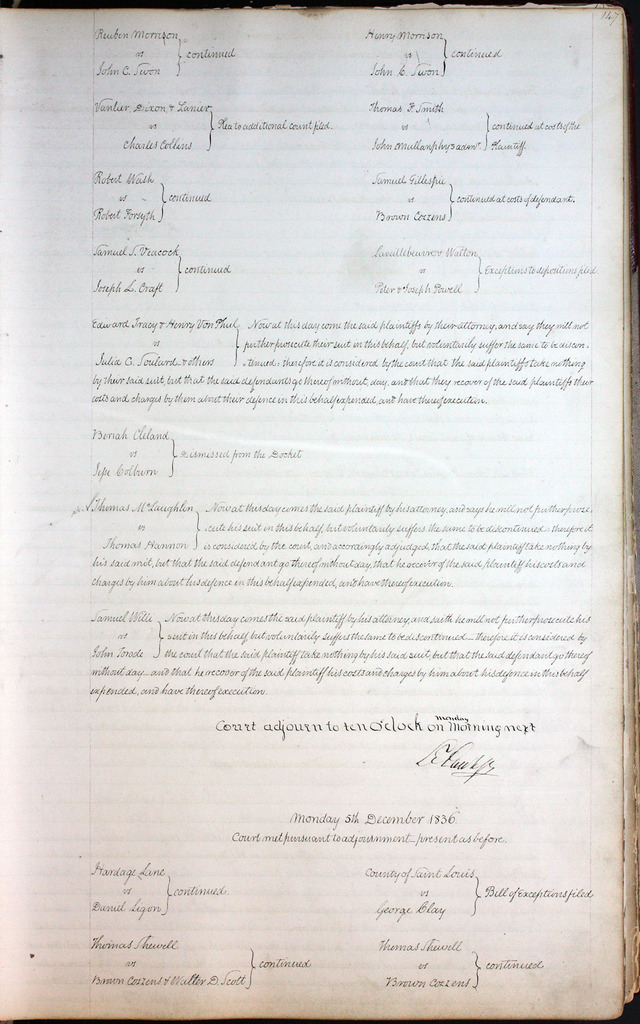 147
Reuben Morrison
vs
John C. Swon
continued
Henry Morrison
vs
John C. Swon
continued
Vanlier, Dixon & Lanier
vs
Charles Collins
Plea to additional count filed.
Thomas F. Smith
vs
John Mullanphy's admr.
continued at costs of the
Plaintiff.
Robert Wash
vs
Robert Forsyth
continued
Samuel Gillespie
vs
Brown Cozzens
continued at costs of defendant.
Samuel S. Peacock
vs
Joseph L. Craft
continued
vs
Peter & Joseph Powell
Exceptions to depositions filed
Edward Tracy & Henry Von Phul
vs
Julia C. Soulard & others
Now at this day come the said plaintiffs by their attorney, and say they will not
further prosecute their suit in this behalf, but voluntarily suffer the same to be discon-
tinued: therefore it is considered by the court that the said plaintiffs take nothing
by their said suit, but that the said defendants go thereof without day, and that they recover of the said plaintiffs their
costs and charges by them about their defence in this behalf expended, and have thereof execution.
Beriah Cleland
vs
Jesse Colburn
Dismissed from the Docket
Thomas McLaughlin
vs
Thomas Hannon
Now at this day comes the said plaintiff by his attorney, and says he will not further prose-
cute his suit in this behalf, but voluntarily suffers the same to be discontinued: therefore it
is considered by the court, and accordingly adjudged, that the said plaintiff take nothing by
his said writ, but that the said defendant go thereof without day, that he recover of the said plaintiff his costs and
charges by him about his defence in this behalf expended, and have thereof execution.
Samuel Willi
vs
John Soode
Now at this day comes the said plaintiff by his attorney, and saith he will not further prosecute his
suit in this behalf, but voluntarily suffers the same to be discontinued — therefore it is considered by
the court that the said plaintiff take nothing by his said suit, but that the said defendant go thereof
without day — and that he recover of the said plaintiff his costs and charges by him about his defence in this behalf
expended, and have thereof execution.
Court adjourn to ten O'clock on monday Morning next
Monday 5th December 1836.
Court met pursuant to adjournment — present as before.
Hardage Lane
vs
Daniel Ligon
continued.
County of Saint Louis
vs
George Clay
Bill of Exceptions filed
Thomas Shewell
vs
Brown Cozzens & Walter D. Scott
continued
Thomas Shewell
vs
Brown Cozzens
continued